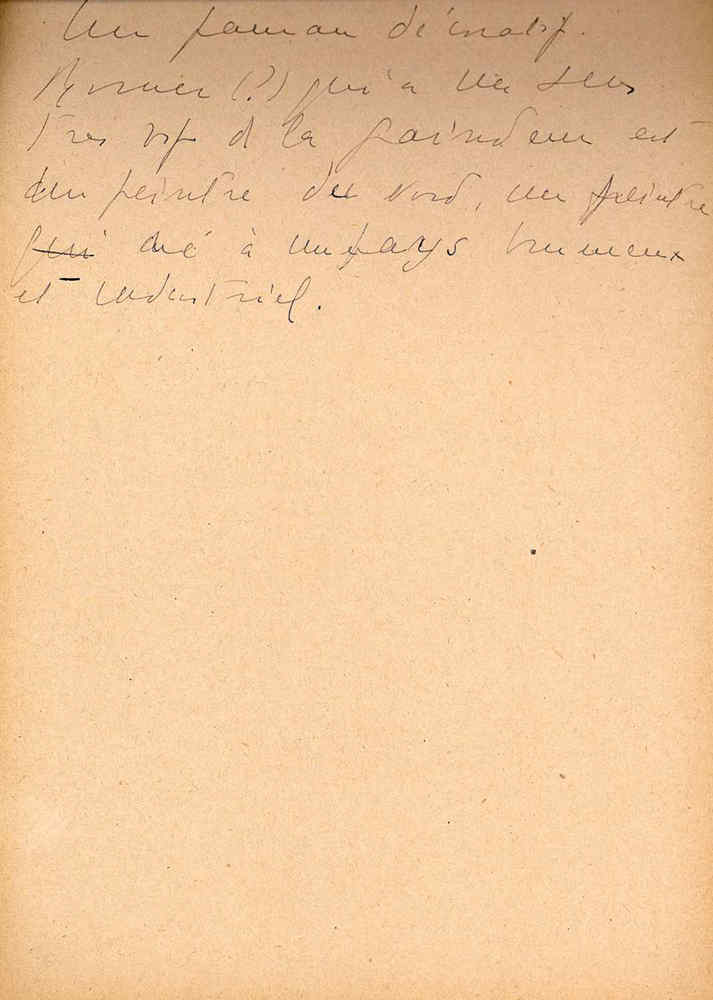 Un panneau décoratif.
(?) qui a un sens
très vif d la grandeur est
un peintre du Nord, un peintre
qui né à un pays brumeux
et industriel.